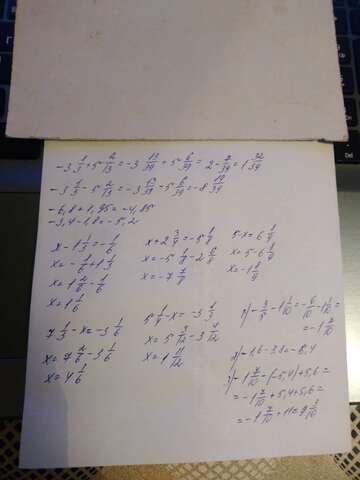 -3 1/3 + 5 2/13 = -3 13/39 + 5 6/39 = 2 - 7/39 = 1 32/39
-3 1/3 - 5 2/13 = -3 13/39 - 5 6/39 = -8 19/39
-6,8 + 1,95 = -4,85
-3,4 - 1,8 = -5,2
x - 1 1/3 = -1/6
x = -1/6 + 1 1/3
x = 1 2/6 - 1/6
x = 1 1/6
x + 2 3/4 = -5 1/8
x = -5 1/8 - 2 6/8
x = -7 7/8
5 - x = 6 1/9
x = 5 - 6 1/9
x = -1 1/9
7 1/3 - x = 3 1/6
x = 7 2/6 - 3 1/6
x = 4 1/6
5 1/4 - x = 3 1/3
x = 5 3/12 - 3 4/12
x = 1 11/12
1) - 3/5 - 1 1/10 = - 6/10 - 1 1/10 =
= -1 7/10
2) -1,6 - 3,8 = -5,4
3) -1 7/10 - (-5,4) + 5,6 =
= -1 7/10 + 5,4 + 5,6 =
= -1 7/10 + 11 = 9 3/10